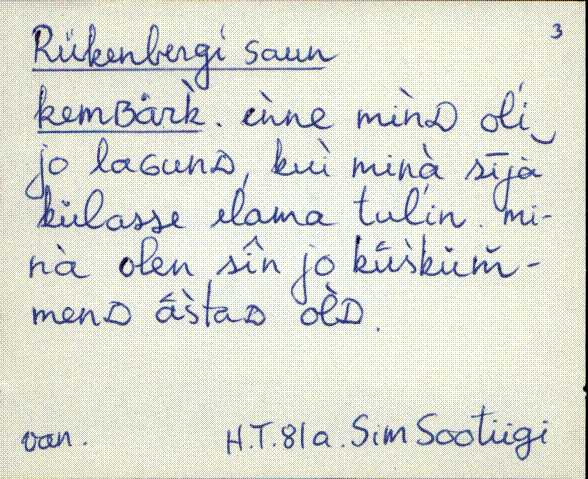 3
Rükenbergi saun
kemʙärk̀. èǹne miǹᴅ oĺi
jo laɢunᴅ, kuì minà sījà
külasse elama tuĺin. mi-
nà olen sîn jo kǖskü̆m̆-
menᴅ âstaᴅ oĺᴅ.
van. H.T. 81a. Sim Sootiigi